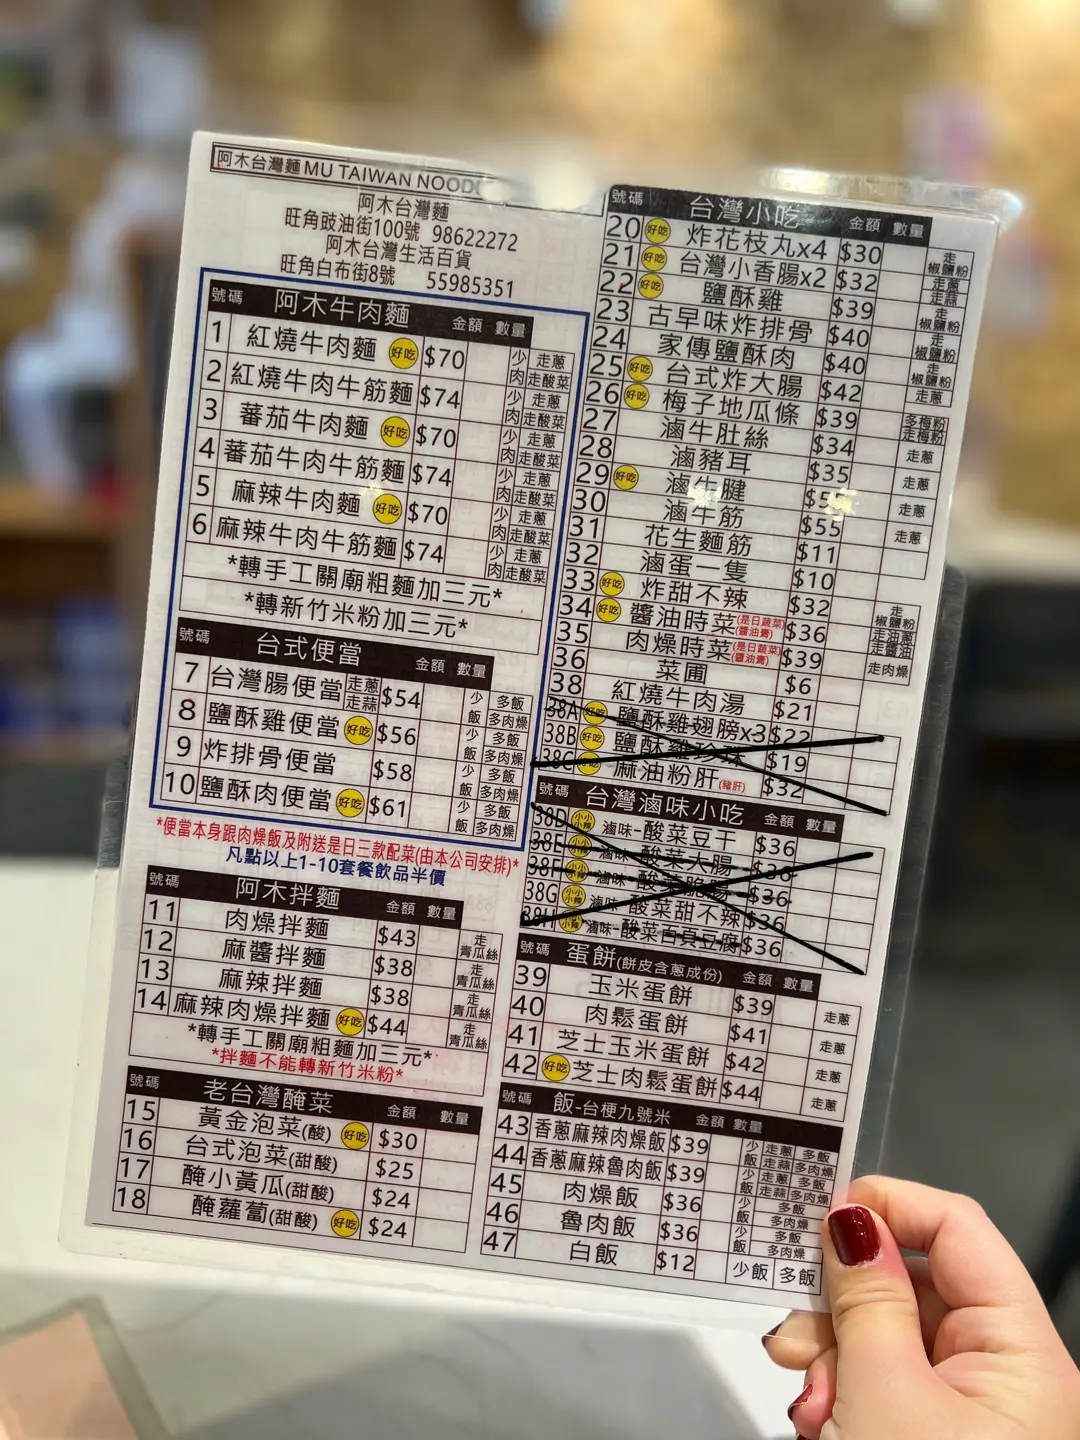 阿木台灣麵 MU TAIWAN NOOD
阿木台灣麵
旺角豉油街100號 98622272
阿木台灣生活百貨
旺角白布街8號 55985351
號碼 阿木牛肉麵 金額 數量
1 紅燒牛肉麵 好吃 $70 少肉 走蔥 走酸菜
2 紅燒牛肉牛筋麵 $74 少肉 走蔥 走酸菜
3 蕃茄牛肉麵 好吃 $70 少肉 走蔥 走酸菜
4 蕃茄牛肉牛筋麵 $74 少肉 走蔥 走酸菜
5 麻辣牛肉麵 好吃 $70 少肉 走蔥 走酸菜
6 麻辣牛肉牛筋麵 $74 少肉 走蔥 走酸菜
*轉手工關廟粗麵加三元*
*轉新竹米粉加三元*
號碼 台式便當 金額 數量
7 台灣腸便當 走蔥 走蒜 $54 少飯 多飯 多肉燥
8 鹽酥雞便當 好吃 $56 少飯 多飯 多肉燥
9 炸排骨便當 $58 少飯 多飯 多肉燥
10 鹽酥肉便當 好吃 $61 少飯 多飯 多肉燥
*便當本身跟肉燥飯及附送是日三款配菜(由本公司安排)*
凡點以上1-10套餐飲品半價
號碼 阿木拌麵 金額 數量
11 肉燥拌麵 $43 走青瓜絲
12 麻醬拌麵 $38 走青瓜絲
13 麻辣拌麵 $38 走青瓜絲
14 麻辣肉燥拌麵 好吃 $44 走青瓜絲
*轉手工關廟粗麵加三元*
*拌麵不能轉新竹米粉*
號碼 老台灣醃菜 金額 數量
15 黃金泡菜(酸) 好吃 $30
16 台式泡菜(甜酸) $25
17 醃小黃瓜(甜酸) $24
18 醃蘿蔔(甜酸) 好吃 $24
號碼 台灣小吃 金額 數量
20 好吃 炸花枝丸x4 $30 走椒鹽粉
21 好吃 台灣小香腸x2 $32 走蔥 走蒜
22 好吃 鹽酥雞 $39 走椒鹽粉
23 古早味炸排骨 $40 走椒鹽粉
24 家傳鹽酥肉 $40 走椒鹽粉
25 好吃 台式炸大腸 $42 走蔥
26 好吃 梅子地瓜條 $39 多梅粉 走梅粉
27 滷牛肚絲 $34 走蔥
28 滷豬耳 $35 走蔥
29 好吃 滷牛腱 走蔥
30 滷牛筋 $55 走蔥
31 花生麵筋 $11
32 滷蛋一隻 $10
33 好吃 炸甜不辣 $32 走椒鹽粉
34 好吃 醬油時菜(是日蔬菜)(醬油膏) $36 走油蔥 走醬油
35 肉燥時菜(是日蔬菜)(醬油膏) $39 走肉燥
36 菜圃 $6
38 紅燒牛肉湯 $21
38A 好吃 鹽酥雞翅膀x3 $22
38B 好吃 鹽酥雞珍珠 $19
38C 好吃 麻油粉肝(豬肝) $32
號碼 台灣滷味小吃 金額 數量
38D 小小小辣 滷味-酸菜豆干 $36
38E 小小小辣 滷味-酸菜大腸 $36
38F 小小小辣 滷味-酸菜 $36
38G 小小小辣 滷味-酸菜甜不辣 $36
38H 小小小辣 滷味-酸菜百頁豆腐 $36
號碼 蛋餅(餅皮含蔥成份) 金額 數量
39 玉米蛋餅 $39 走蔥
40 肉鬆蛋餅 $41 走蔥
41 芝士玉米蛋餅 $42 走蔥
42 好吃 芝士肉鬆蛋餅 $44 走蔥
號碼 飯-台梗九號米 金額 數量
43 香蔥麻辣肉燥飯 $39 少飯 走蔥 多飯 走蒜 多肉燥
44 香蔥麻辣魯肉飯 $39 少飯 走蔥 多飯 走蒜 多肉燥
45 肉燥飯 $36 少飯 多飯 多肉燥
46 魯肉飯 $36 少飯 多飯 多肉燥
47 白飯 $12 少飯 多飯